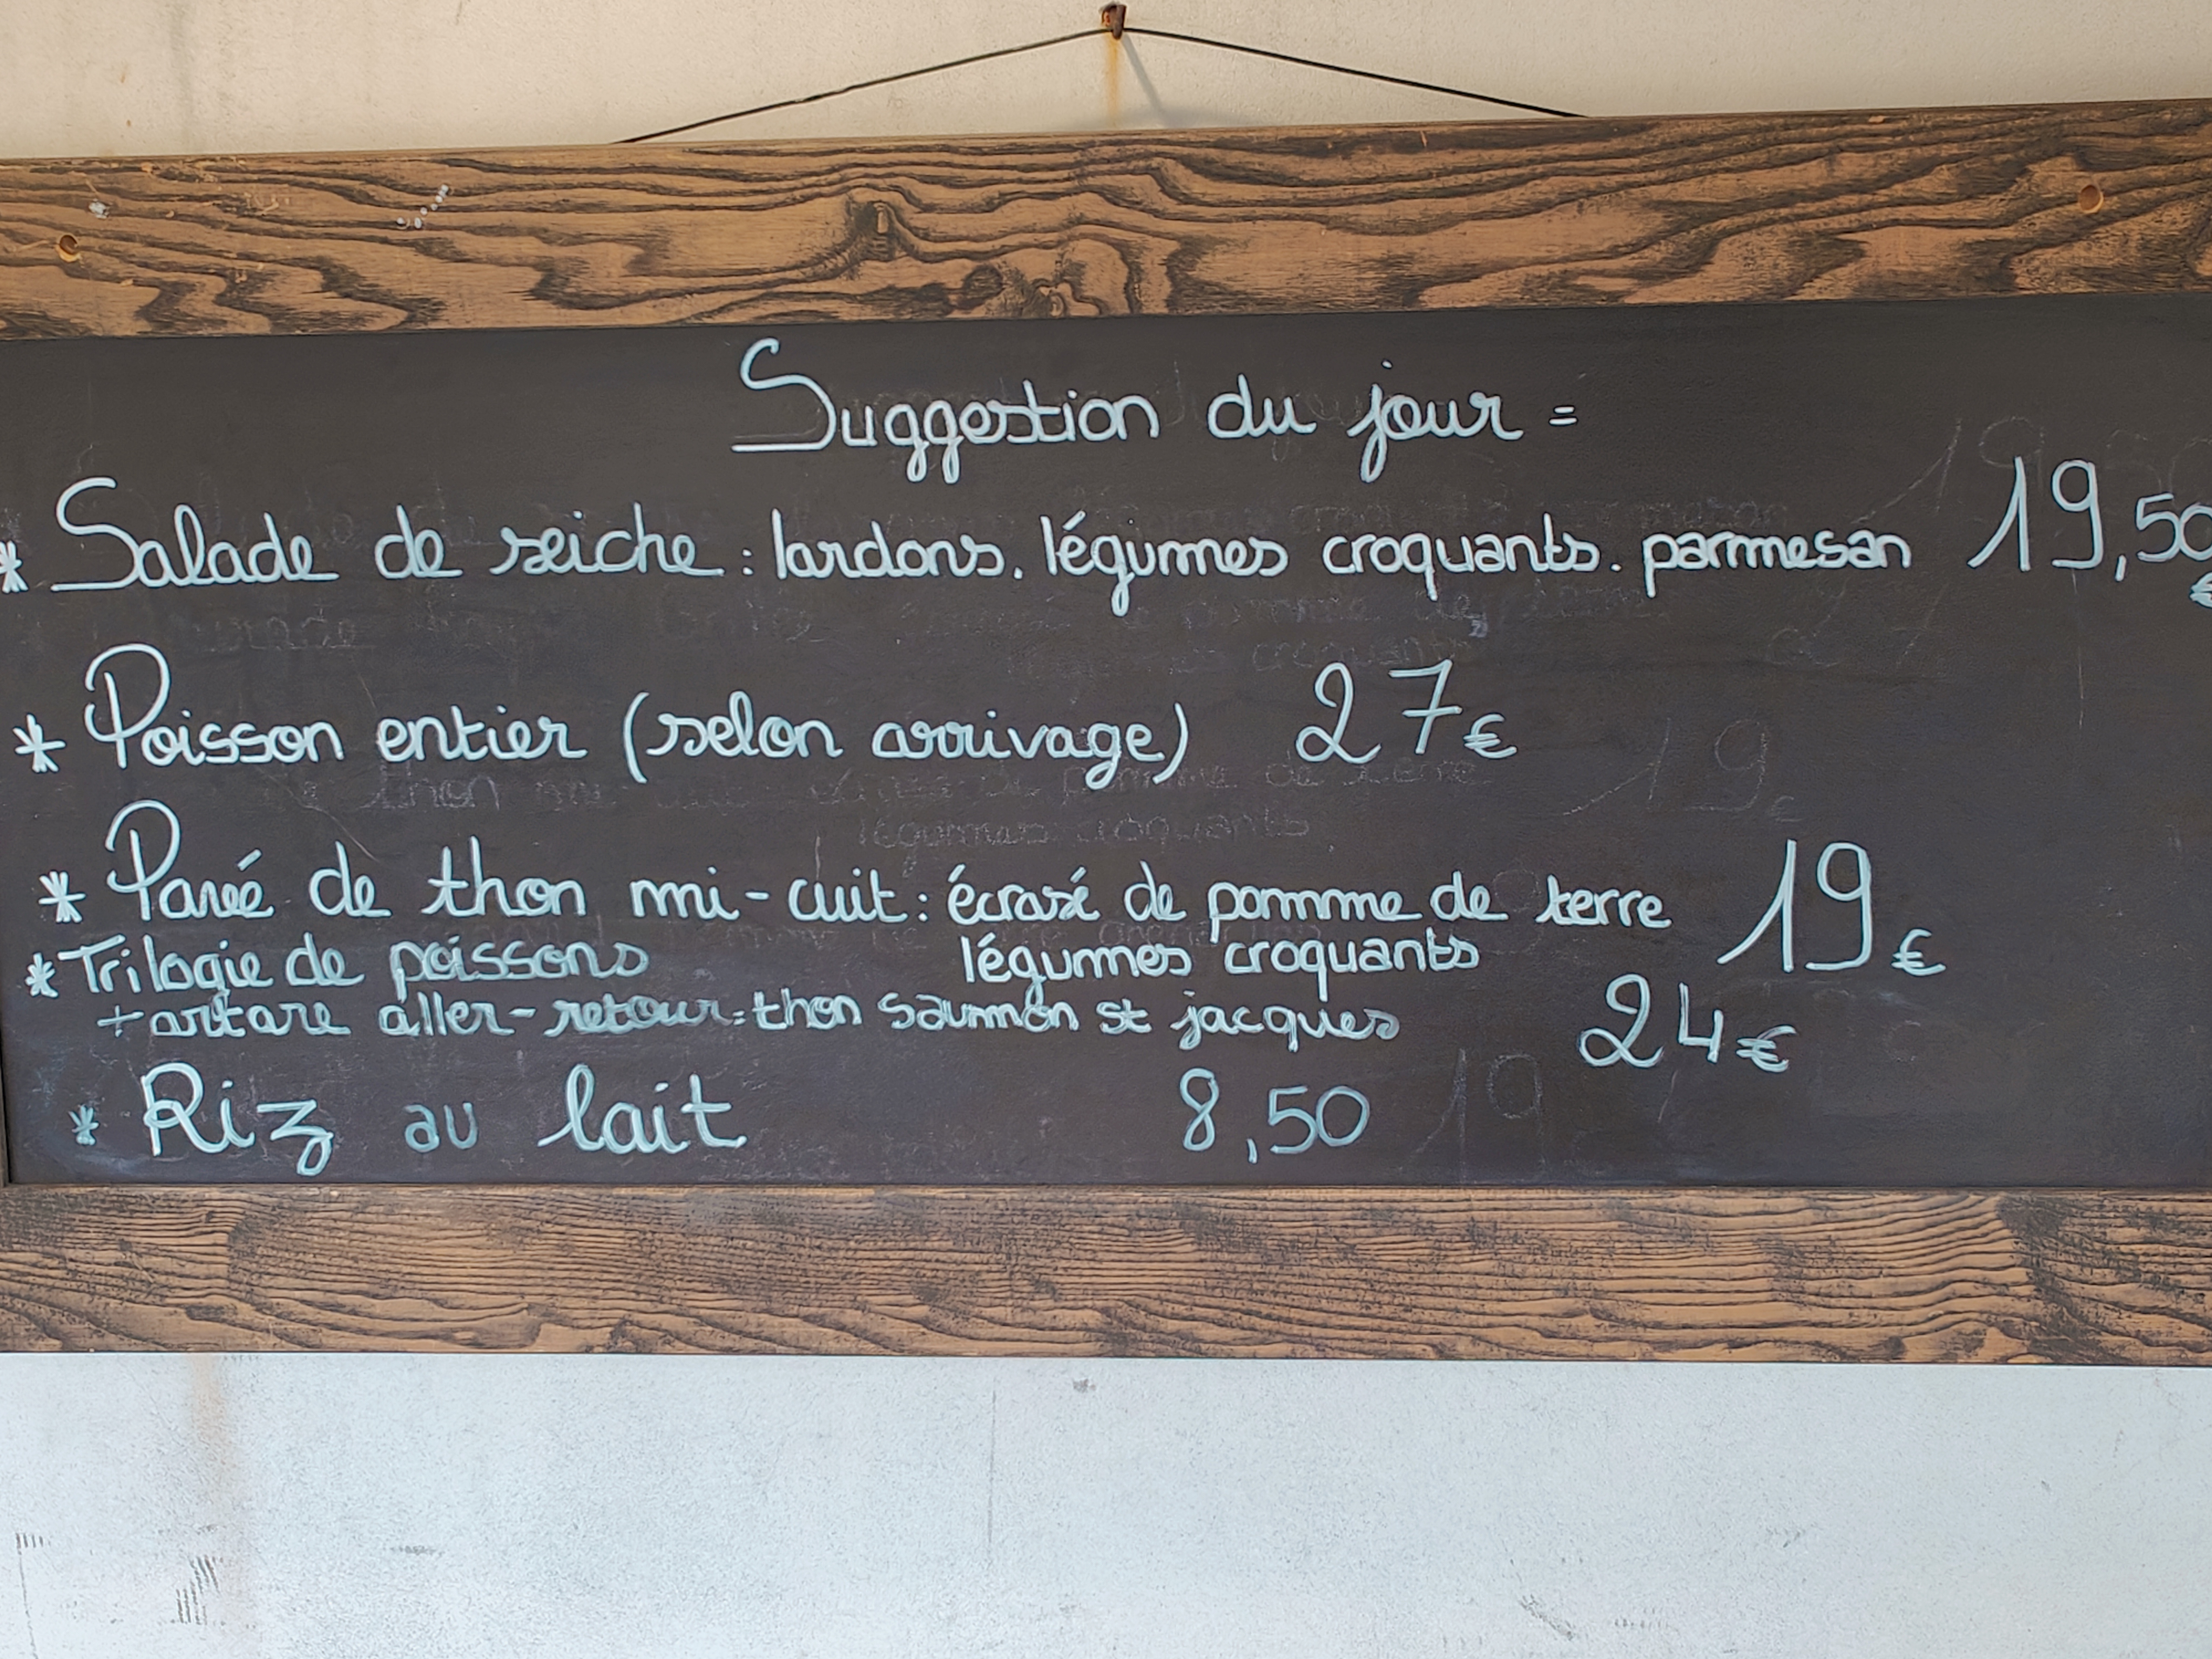 Suggestion du jour =
* Salade de seiche : lardons. légumes croquants. parmesan 19,50 €
* Poisson entier (selon arrivage) 27€
* Pavé de thon mi-cuit : écrasé de pomme de terre 19€
légumes croquants
* Trilogie de poissons
+ artare aller-retour : thon saumon st jacques 24€
* Riz au lait 8,50